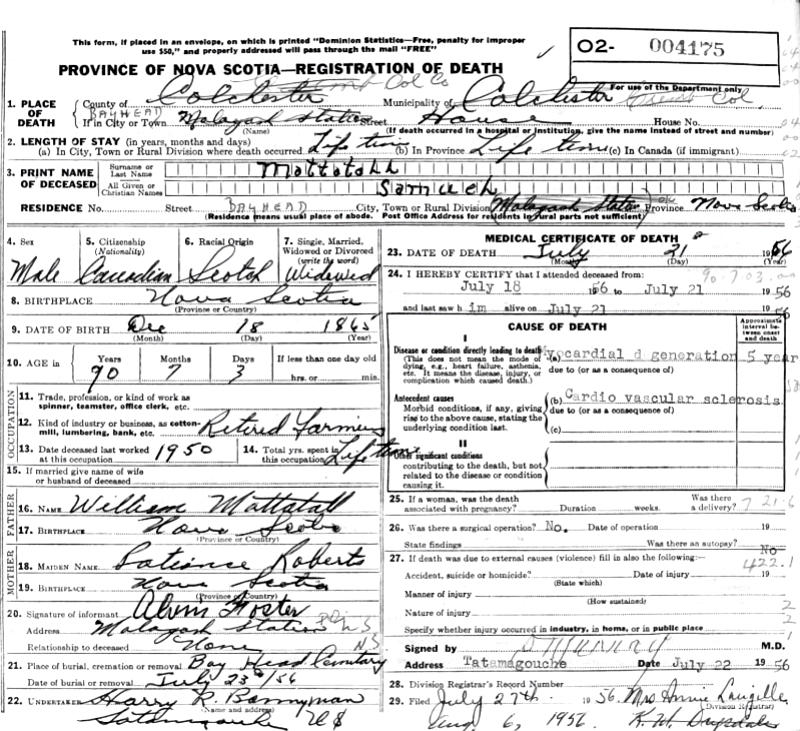 This form, if placed in an envelope, on which is printed "Dominion Statistics—Free, penalty for improper
use $50," and properly addressed will pass through the mail "FREE"
O2- 004175
PROVINCE OF NOVA SCOTIA—REGISTRATION OF DEATH
For use of the Department only
1. PLACE OF DEATH
County of Colchester Col Co Municipality of Colchester Col.
BAYHEAD
If in City or Town Malagash Station Street House House No.
(Name) (If death occurred in a hospital or institution, give the name instead of street and number)
2. LENGTH OF STAY (in years, months and days)
(a) In City, Town or Rural Division where death occurred Life time (b) In Province Life time (c) In Canada (if immigrant)
3. PRINT NAME OF DECEASED
Surname or Last Name Mattatall
All Given or Christian Names Samuel
RESIDENCE No. Street BAYHEAD City, Town or Rural Division Malagash Station Province Nova Scotia
(Residence means usual place of abode. Post Office Address for residents in rural parts not sufficient)
4. Sex 5. Citizenship (Nationality) 6. Racial Origin 7. Single, Married, Widowed or Divorced (write the word)
Male Canadian Scotch Widowed
8. BIRTHPLACE Nova Scotia
(Province or Country)
9. DATE OF BIRTH Dec 18 1865
(Month) (Day) (Year)
10. AGE in Years Months Days If less than one day old
90 7 3 hrs. or min.
OCCUPATION
11. Trade, profession, or kind of work as spinner, teamster, office clerk, etc.
12. Kind of industry or business, as cotton-mill, lumbering, bank, etc. Retired Farming
13. Date deceased last worked at this occupation 1950 14. Total yrs. spent in this occupation Life time
15. If married give name of wife or husband of deceased
FATHER
16. NAME William Mattatall
17. BIRTHPLACE Nova Scotia
(Province or Country)
MOTHER
18. MAIDEN NAME Patience Roberts
19. BIRTHPLACE Nova Scotia
(Province or Country)
20. Signature of informant Alvin Foster
Address Malagash Station NS
Relationship to deceased None
21. Place of burial, cremation or removal Bay Head Cemetary
Date of burial or removal July 23 /56
22. UNDERTAKER Harry R. Bonnyman
(Name and address)
Tatamagouche NS
MEDICAL CERTIFICATE OF DEATH
23. DATE OF DEATH July 21 1956
(Month) (Day) (Year)
24. I HEREBY CERTIFY that I attended deceased from:
90-703.00
July 18 1956 to July 21 1956
and last saw him alive on July 21 1956
CAUSE OF DEATH
Approximate interval between onset and death
I
Disease or condition directly leading to death
(This does not mean the mode of dying, e.g., heart failure, asthenia, etc. It means the disease, injury, or complication which caused death.)
(a) yocardial d generation 5 year
due to (or as a consequence of)
Antecedent causes
Morbid conditions, if any, giving rise to the above cause, stating the underlying condition last.
(b) Cardio vascular sclerosis
due to (or as a consequence of)
(c)
II
Other significant conditions
contributing to the death, but not related to the disease or condition causing it.
25. If a woman, was the death associated with pregnancy? Duration weeks. Was there a delivery?
26. Was there a surgical operation? No. Date of operation 19
State findings Was there an autopsy? No
27. If death was due to external causes (violence) fill in also the following: 422.1
Accident, suicide or homicide? Date of injury 19
(State which)
Manner of injury
(How sustained)
Nature of injury
Specify whether injury occurred in industry, in home, or in public place
Signed by M.D.
Address Tatamagouche Date July 22 1956
28. Division Registrar's Record Number
29. Filed July 27th 1956. Mrs Annie Langille
(Division Registrar)
Aug 6, 1956